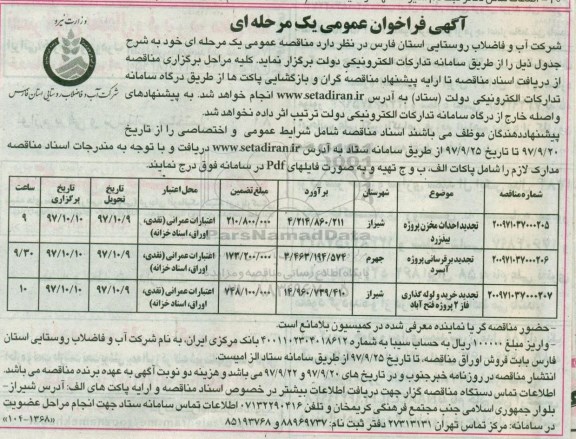 آگهی فراخوان عمومی یک مرحله ای
وزارت نیرو
شرکت آب و فاضلاب روستایی استان فارس
شرکت آب و فاضلاب روستایی استان فارس در نظر دارد مناقصه عمومی یک مرحله ای خود به شرح
جدول ذیل را از طریق سامانه تدارکات الکترونیکی دولت برگزار نماید. کلیه مراحل برگزاری مناقصه
از دریافت اسناد مناقصه تا ارایه پیشنهاد مناقصه گران و بازگشایی پاکت ها از طریق درگاه سامانه
تدارکات الکترونیکی دولت (ستاد) به آدرس www.setadiran.ir انجام خواهد شد. به پیشنهادهای
واصله خارج از درگاه سامانه تدارکات الکترونیکی دولت ترتیب اثر داده نخواهد شد.
پیشنهاددهندگان موظف می باشند اسناد مناقصه شامل شرایط عمومی و اختصاصی را از تاریخ
۹۷/۹/۲۰ تا تاریخ ۹۷/۹/۲۵ از طریق سامانه ستاد به آدرس www.setadiran.ir دریافت و با توجه به مندرجات اسناد مناقصه
مدارک لازم را شامل پاکات الف، ب و ج تهیه و به صورت فایلهای Pdf در سامانه فوق درج نمایند.
شماره مناقصه موضوع شهرستان برآورد مبلغ تضمین محل اعتبار تاریخ تحویل تاریخ برگزاری ساعت
۲۰۰۹۷۱۰۳۷۰۰۰۲۰۵ تجدید احداث مخزن پروژه بیدزرد شیراز ۴/۲۱۴/۸۶۰/۲۱۱ ۲۱۰/۸۰۰/۰۰۰ اعتبارات عمرانی (نقدی، اوراق، اسناد خزانه) ۹۷/۱۰/۹ ۹۷/۱۰/۱۰ ۹
۲۰۰۹۷۱۰۳۷۰۰۰۲۰۶ تجدید برقرسانی پروژه آبسرد جهرم ۳/۴۶۳/۱۹۴/۵۷۴ ۱۷۳/۲۰۰/۰۰۰ اعتبارات عمرانی (نقدی، اوراق، اسناد خزانه) ۹۷/۱۰/۹ ۹۷/۱۰/۱۰ ۹/۳۰
۲۰۰۹۷۱۰۳۷۰۰۰۲۰۷ تجدید خرید و لوله گذاری فاز ۲ پروژه فتح آباد شیراز ۱۴/۹۶۰/۷۳۹/۴۱۵ ۷۴۸/۱۰۰/۰۰۰ اعتبارات عمرانی (نقدی، اوراق، اسناد خزانه) ۹۷/۱۰/۹ ۹۷/۱۰/۱۰ ۱۰
ParsNamadData
- حضور مناقصه گر یا نماینده معرفی شده در کمیسیون بلامانع است.
- واریز مبلغ ۱۰۰۰۰۰ ریال به حساب سیبا به شماره ۴۰۰۱۱۰۲۳۰۴۰۱۸۶۱۲ بانک مرکزی ایران، به نام شرکت آب و فاضلاب روستایی استان
فارس بابت فروش اوراق مناقصه، تا تاریخ ۹۷/۹/۲۵ از طریق سامانه ستاد الزامیست.
انتشار مناقصه در روزنامه خبر جنوب و در تاریخ های ۹۷/۹/۲۰ و ۹۷/۹/۲۲ می باشد و هزینه دو نوبت آگهی به عهده برنده مناقصه می باشد.
اطلاعات تماس دستگاه مناقصه گزار جهت دریافت اطلاعات بیشتر در خصوص اسناد مناقصه و ارایه پاکت های الف: آدرس شیراز-
بلوار جمهوری اسلامی جنب مجتمع فرهنگی کریمخان و تلفن ۰۷۱۳۲۲۹۰۴۱۶ اطلاعات تماس سامانه ستاد جهت انجام مراحل عضویت
در سامانه: مرکز تماس تهران ۲۷۳۱۳۱۳۱ دفتر ثبت نام: ۸۸۹۶۹۷۳۷ و ۸۵۱۹۳۷۶۸
«۱۰۴-۱۳۶۸»